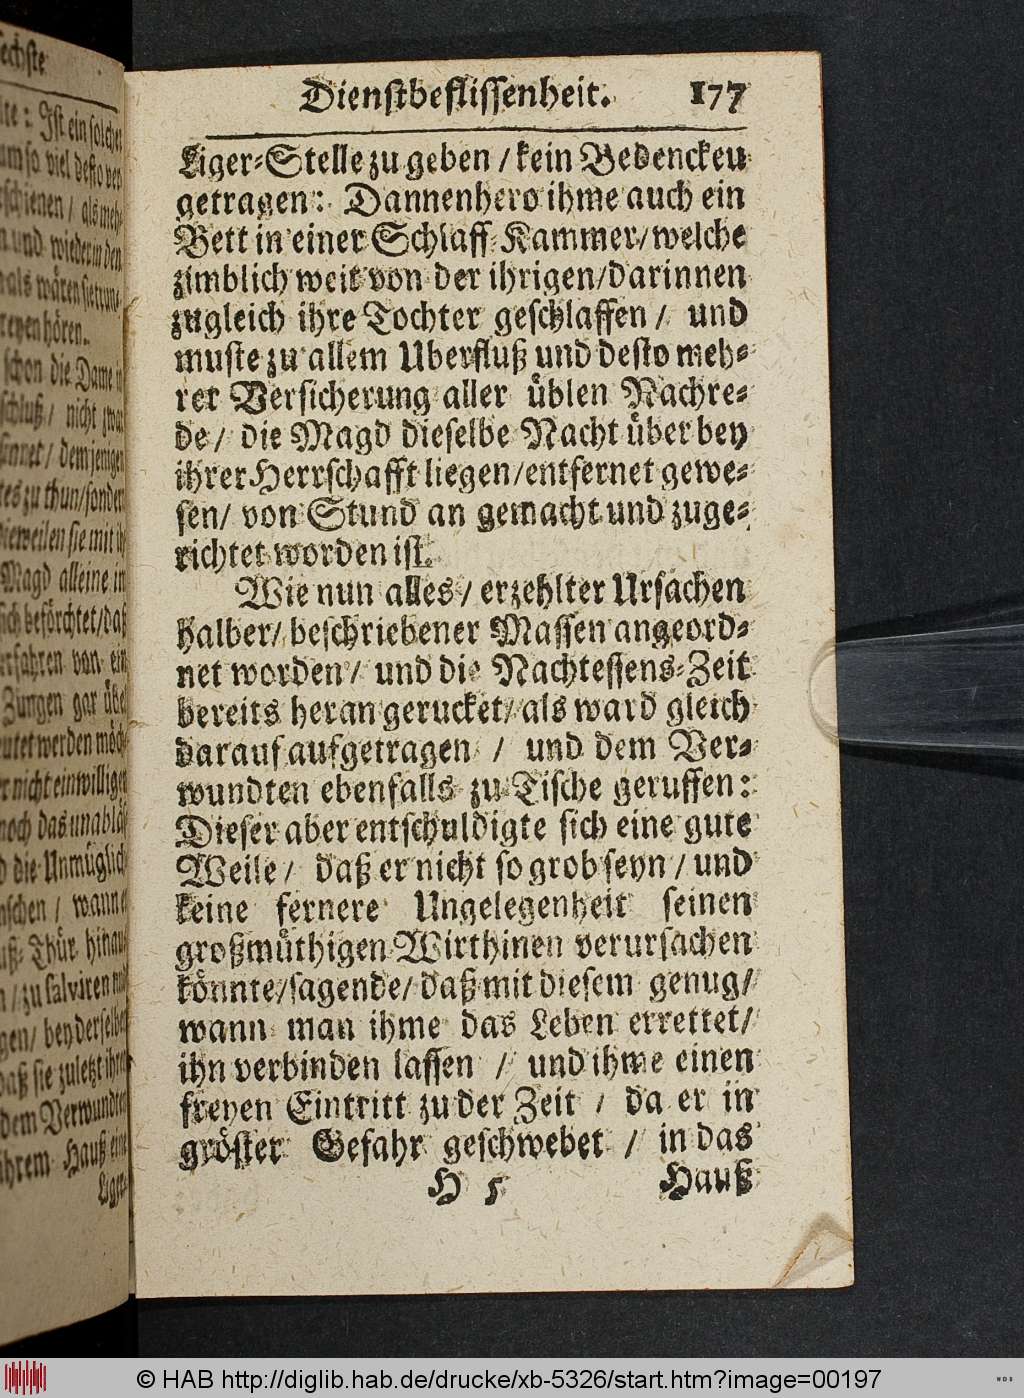 Dienstbeflissenheit. 177
Liger-Stelle zu geben / kein Bedencken
getragen: Dannenhero ihme auch ein
Bett in einer Schlaff-Kammer / welche
zimblich weit von der ihrigen / darinnen
zugleich ihre Tochter geschlaffen / und
muste zu allem Uberfluß und desto meh-
rer Versicherung aller üblen Nachre-
de / die Magd dieselbe Nacht über bey
ihrer Herrschafft liegen / entfernet gewe-
sen / von Stund an gemacht und zuge-
richtet worden ist.
Wie nun alles / erzehlter Ursachen
halber / beschriebener Massen angeord-
net worden / und die Nachtessens-Zeit
bereits heran gerucket / als ward gleich
darauf aufgetragen / und dem Ver-
wundten ebenfalls zu Tische geruffen:
Dieser aber entschuldigte sich eine gute
Weile / daß er nicht so grob seyn / und
keine fernere Ungelegenheit seinen
großmüthigen Wirthinen verursachen
könnte / sagende / daß mit diesem genug /
wann man ihme das Leben errettet /
ihn verbinden lassen / und ihme einen
freyen Eintritt zu der Zeit / da er in
gröster Gefahr geschwebet / in das
H 5 Hauß
© HAB http://diglib.hab.de/drucke/xb-5326/start.htm?image=00197